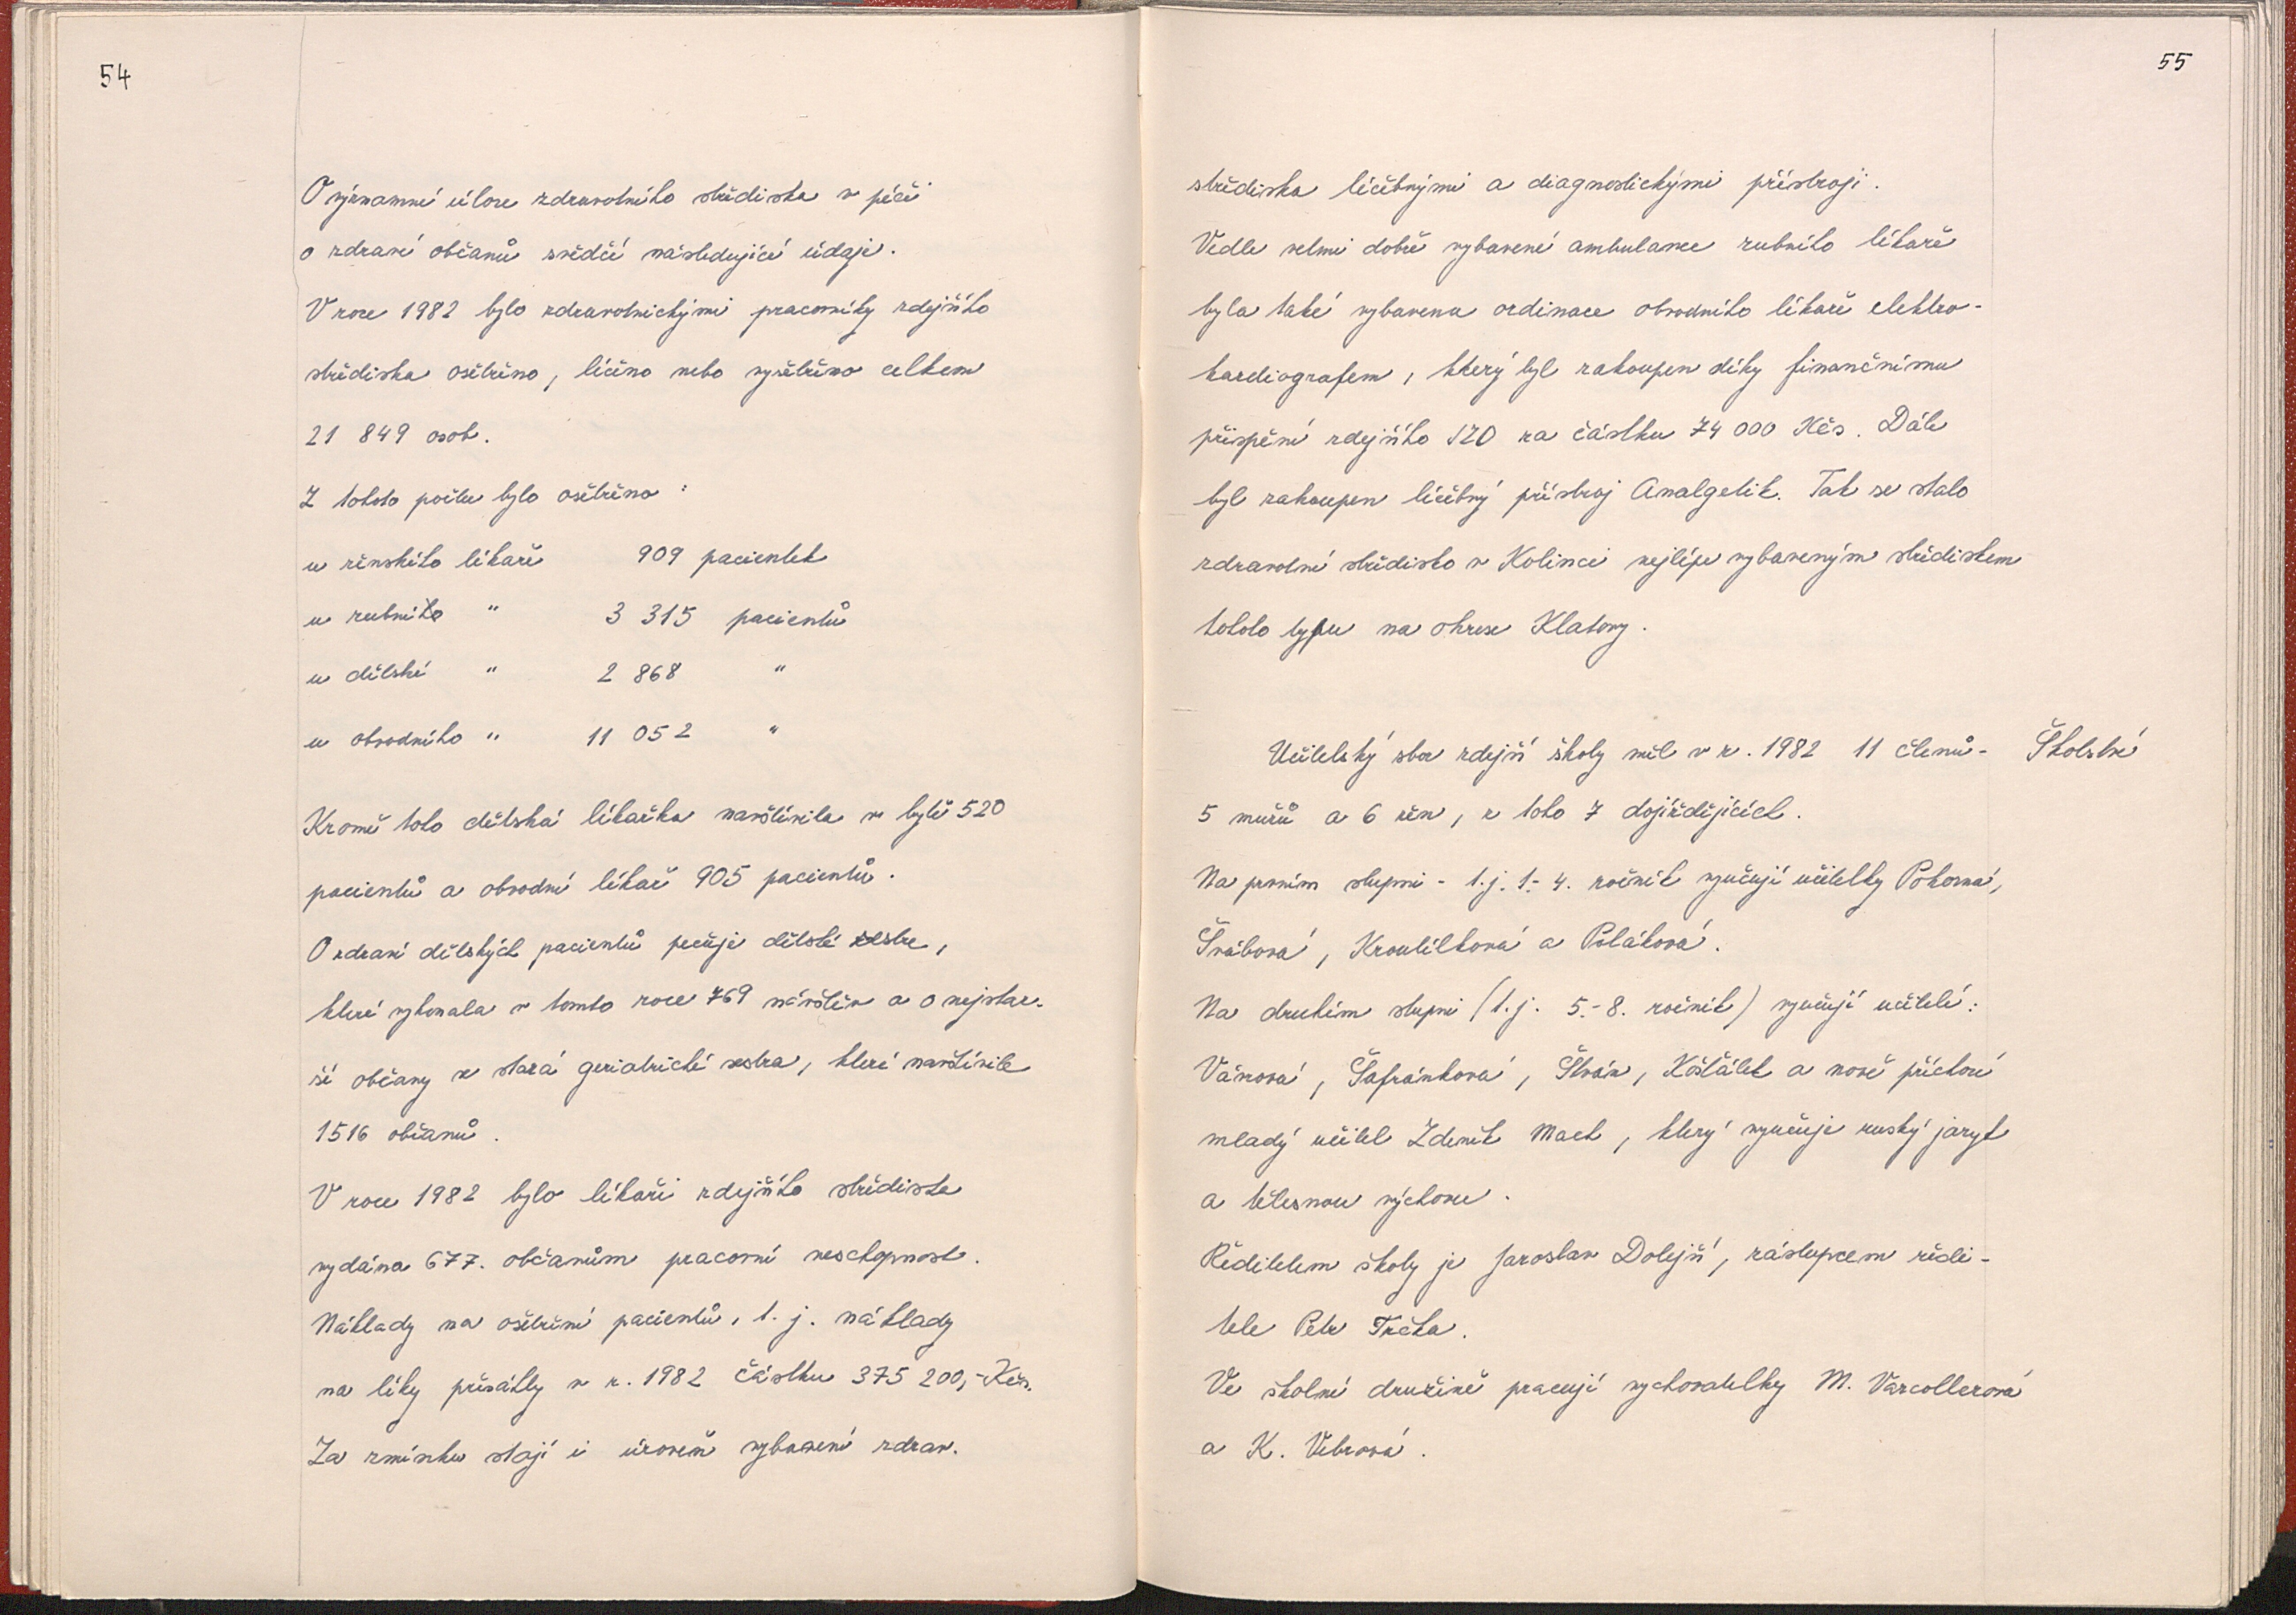 54
O významné úloze zdravotního střediska v péči
o zdraví občanů svědčí následující údaje.
V roce 1982 bylo zdravotnickými pracovníky zdejšího
střediska ošetřeno, léčeno nebo vyšetřeno celkem
21 849 osob.
Z tohoto počtu bylo ošetřeno :
u ženského lékaře 909 pacientek
u zubního " 3 315 pacientů
u dětské " 2 868 "
u obvodního " 11 052 "
Kromě toho dětská lékařka navštívila v bytě 520
pacientů a obvodní lékař 905 pacientů.
O zdraví dětských pacientů pečuje dětská sestra,
která vykonala v tomto roce 769 návštěv a o nejstar-
ší občany se stará geriatrická sestra, která navštívila
1516 občanů.
V roce 1982 bylo lékaři zdejšího střediska
vydána 677. občanům pracovní neschopnost.
Náklady na ošetření pacientů, t. j. náklady
na léky přesáhly v r. 1982 částku 375 200,- Kčs.
Za zmínku stojí i úroveň vybavení zdrav.
55
střediska léčebnými a diagnostickými přístroji.
Vedle velmi dobře vybavené ambulance zubního lékaře
byla také vybavena ordinace obvodního lékaře elektro-
kardiografem, který byl zakoupen díky finančnímu
přispění zdejšího JZD za částku 74 000 Kčs. Dále
byl zakoupen léčebný přístroj Analgetik. Tak se stalo
zdravotní středisko v Kolinci nejlépe vybaveným střediskem
tohoto typu na okrese Klatovy.
Učitelský sbor zdejší školy měl v r. 1982 11 členů - Školství
5 mužů a 6 žen, z toho 7 dojíždějících.
Na prvním stupni - t.j. 1.- 4. ročník vyučují učitelky Pokorná,
Švábová, Kroutilková a Poláková.
Na druhém stupni (t.j. 5.- 8. ročník) vyučují učitelé:
Váňová, Šafránková, Šván, Košťálek a nově příchozí
mladý učitel Zdeněk Mach, který vyučuje ruský jazyk
a tělesnou výchovu.
Ředitelem školy je Jaroslav Dolejší, zástupcem ředi-
tele Petr Trčka.
Ve školní družině pracují vychovatelky M. Varcollerová
a K. Vebrová.